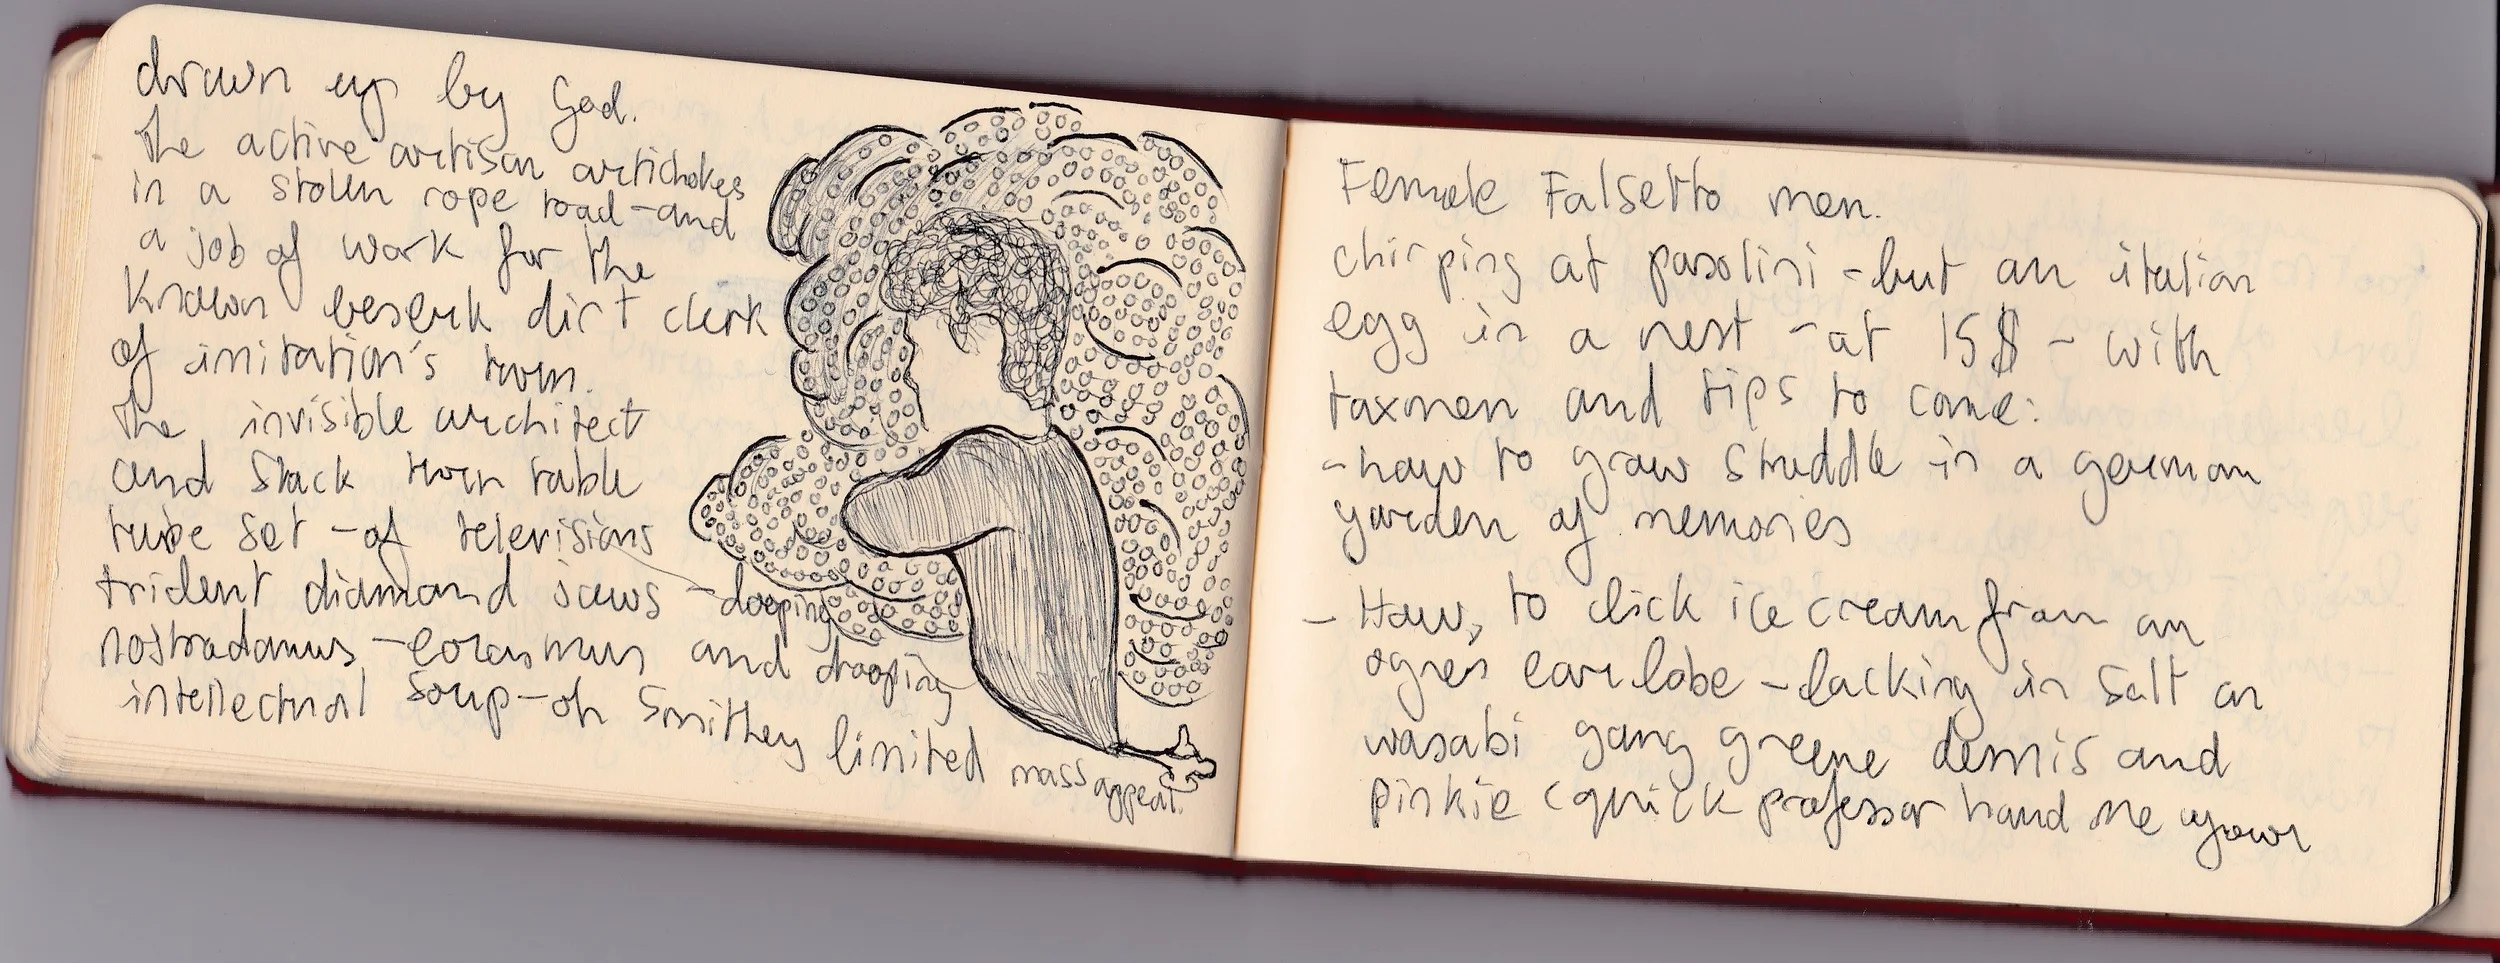 drawn up by God.
The active artisan artichokes
in a stolen rope road - and
a job of work for the
known beserk dirt clerk
of imitation's town.
The invisible architect
and slack torn table
tube set - of televisions
trident diamond jaws - drooping
nostradamus - erasmus and drooping
intellectual soup - oh smithey limited mass appeal.
Female Falsetto men.
chirping at pasolini - but an italian
egg in a nest - at 15$ - with
taxmen and tips to come:
- how to grow struddle in a german
garden of memories
- How, to lick ice cream from an
ogres earlobe - lacking in salt or
wasabi gang greene demis and
pinkie (quick professor hand me your